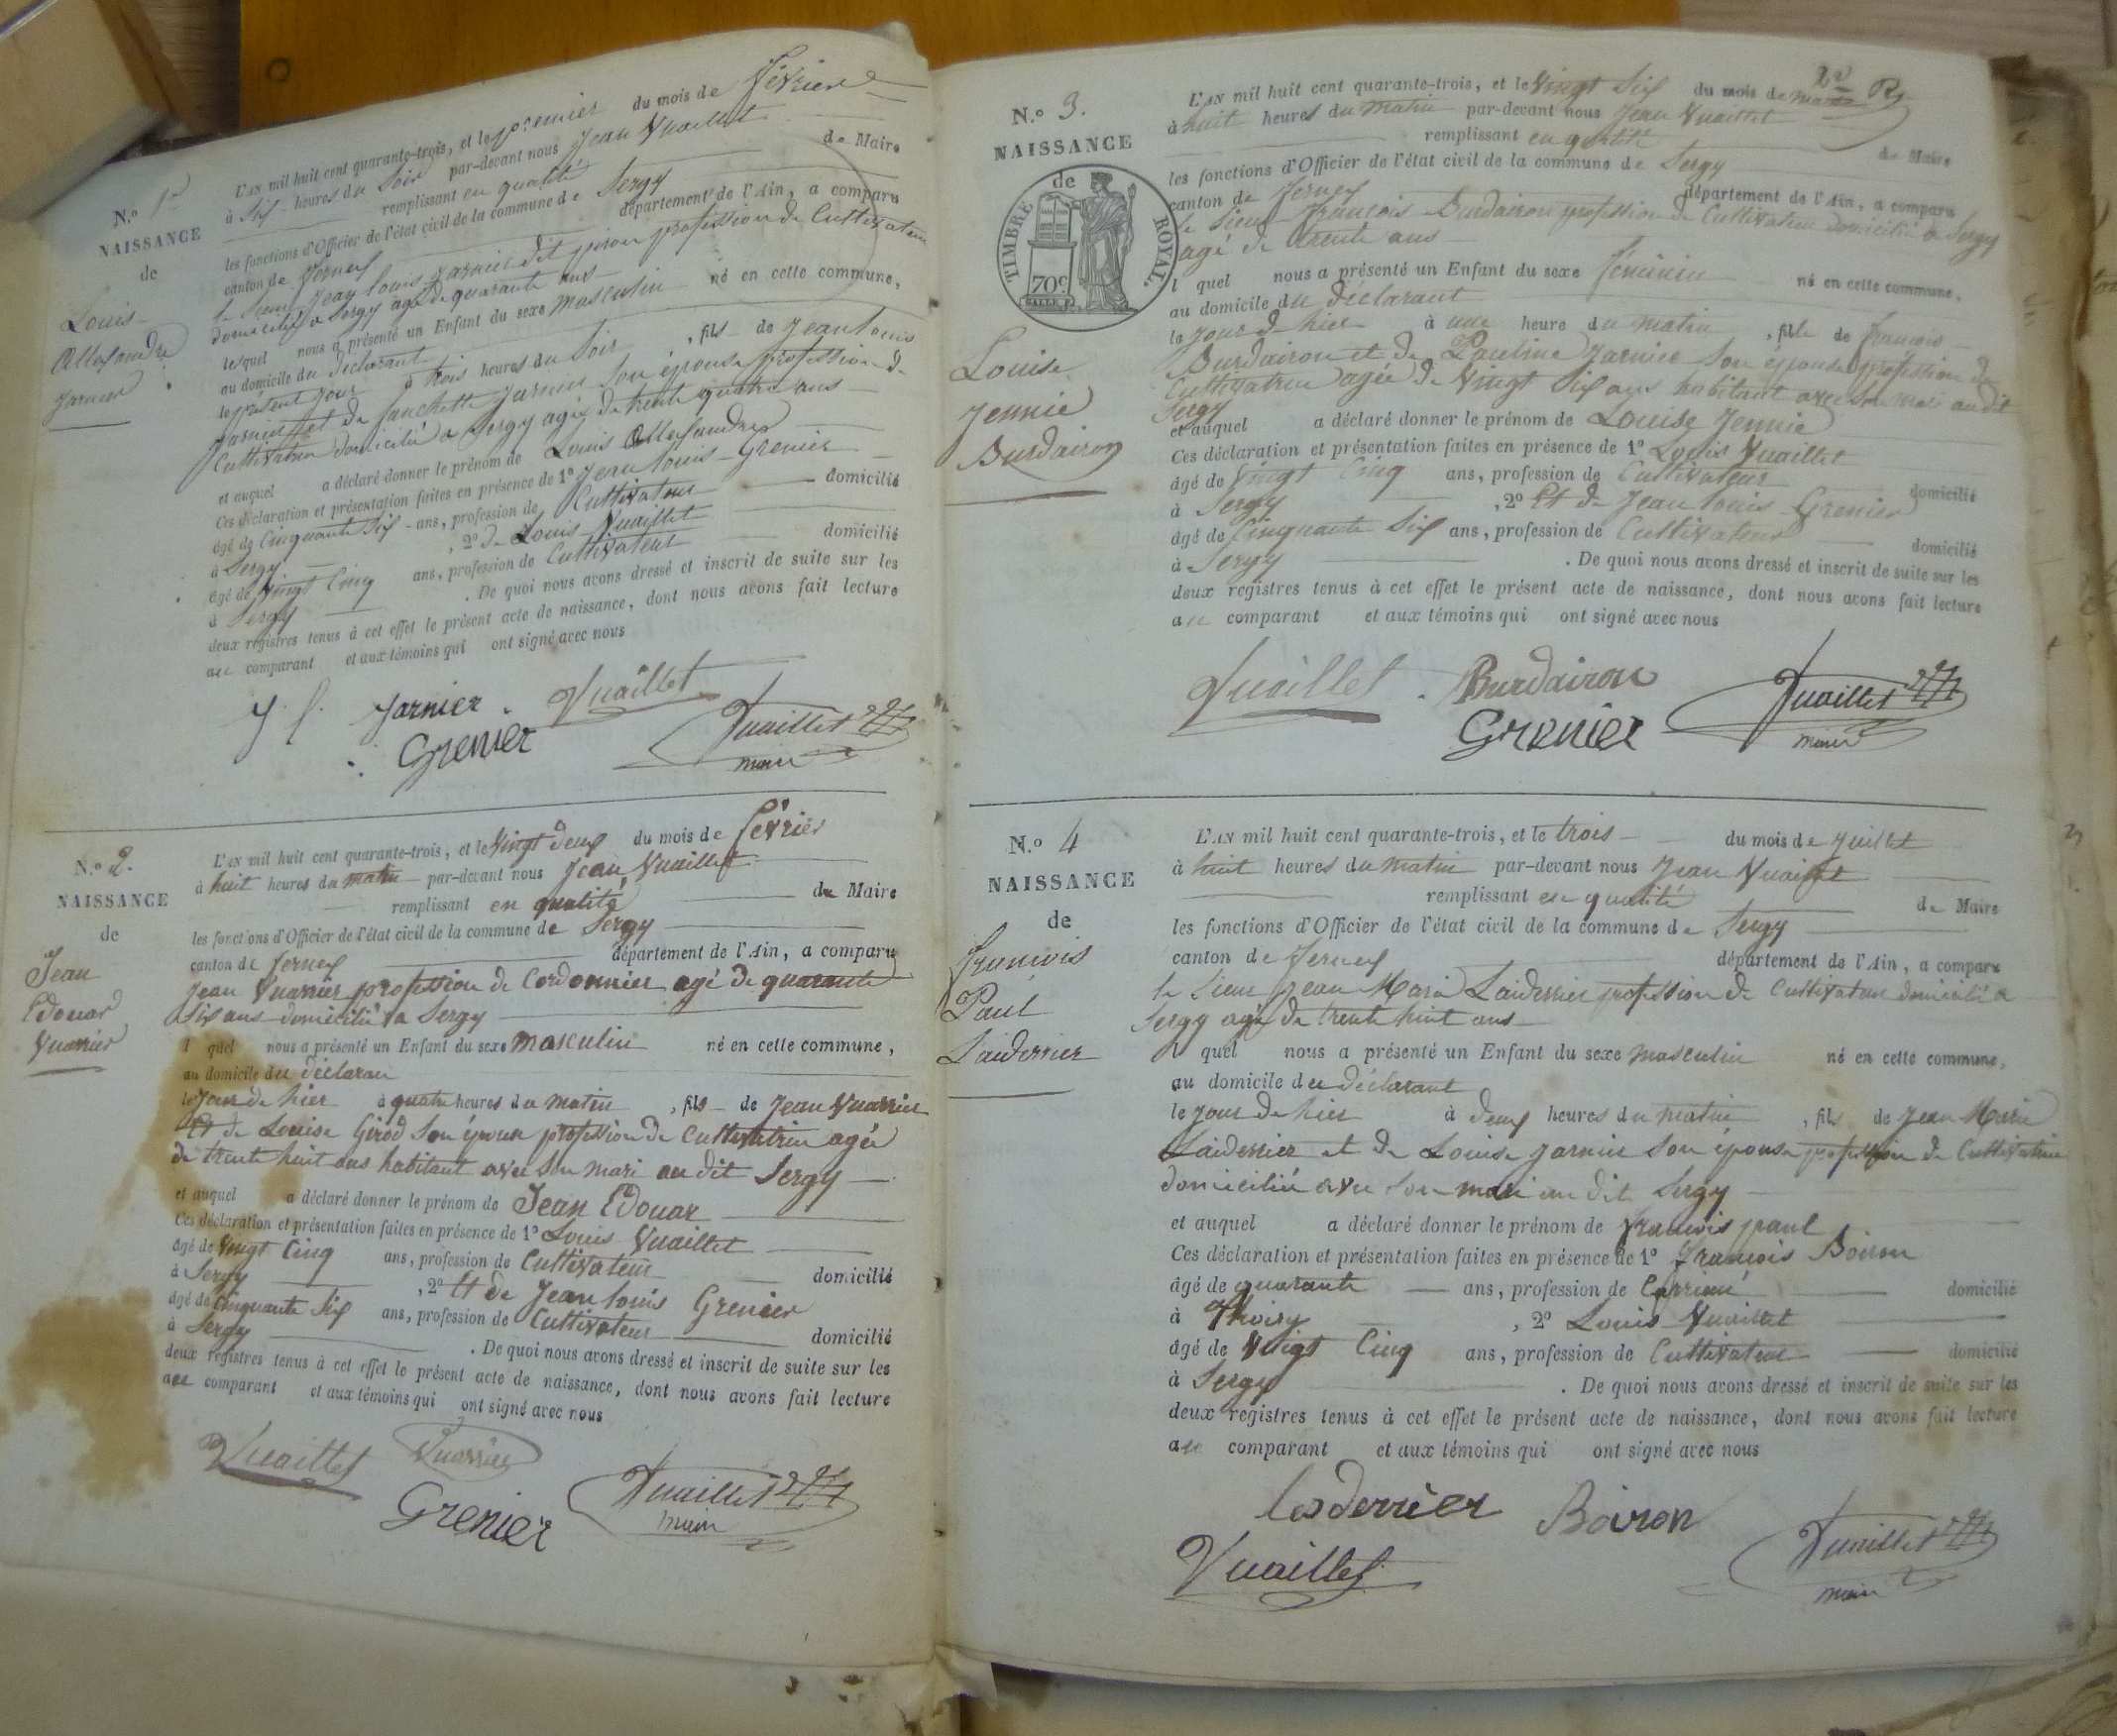 N.º 1er
NAISSANCE
de
Louis
Allexandre
Jarnier
L'AN mil huit cent quarante-trois, et le premier du mois de février
à Six heures du Soir par-devant nous Jean Vuaillet
remplissant en qualité de Maire
les fonctions d'Officier de l'état civil de la commune de Sergy
canton de ferney département de l'Ain, a comparu
le Sieur Jean louis Jarnier dit piron profession de Cultivateur
domicilié a Sergy agé de quarante ans
lequel nous a présenté un Enfant du sexe masculin né en cette commune,
au domicile du déclarant
le présent jour à trois heures du Soir, fils de Jean louis
Jarnier et de fanchette Jarnier Son épouse profession de
Cultivatrice domicilié a Sergy agée de trente quatre ans
et auquel a déclaré donner le prénom de Louis Allexandre
Ces déclaration et présentation faites en présence de 1º Jean louis Grenier
âgé de Cinquante Six ans, profession de Cultivateur domicilié
à Sergy, 2º de Louis Vuaillet
âgé de Vingt Cinq ans, profession de Cultivateur domicilié
à Sergy. De quoi nous avons dressé et inscrit de suite sur les
deux registres tenus à cet effet le présent acte de naissance, dont nous avons fait lecture
au comparant et aux témoins qui ont signé avec nous
J. l. Jarnier Vuaillet
Grenier Vuaillet
maire
N.º 2.
NAISSANCE
de
Jean
Edouar
Vuarrier
L'AN mil huit cent quarante-trois, et le Vingt deux du mois de février
à huit heures du matin par-devant nous Jean Vuaillet
remplissant en qualité de Maire
les fonctions d'Officier de l'état civil de la commune de Sergy
canton de ferney département de l'Ain, a comparu
Jean Vuarrier profession de Cordonnier agé de quarante
Six ans domicilié a Sergy
l quel nous a présenté un Enfant du sexe masculin né en cette commune,
au domicile du déclaran
le Jour de hier à quatre heures du matin, fils de Jean Vuarrier
Et de Louise Girod Son épouse profession de Cultivatrice agée
de trente huit ans habitant avec Son mari au dit Sergy
et auquel a déclaré donner le prénom de Jean Edouar
Ces déclaration et présentation faites en présence de 1º Louis Vuaillet
âgé de Vingt Cinq ans, profession de Cultivateur domicilié
à Sergy, 2º Et de Jean louis Grenier
âgé de Cinquante Six ans, profession de Cultivateur domicilié
à Sergy. De quoi nous avons dressé et inscrit de suite sur les
deux registres tenus à cet effet le présent acte de naissance, dont nous avons fait lecture
au comparant et aux témoins qui ont signé avec nous
Vuaillet Vuarrier
Grenier Vuaillet
maire
N.º 3.
NAISSANCE
de
TIMBRE ROYAL.
70c
Louise
Jennie
Burdairon
L'AN mil huit cent quarante-trois, et le Vingt Six du mois de mars
à huit heures du matin par-devant nous Jean Vuaillet
remplissant en qualité de Maire
les fonctions d'Officier de l'état civil de la commune de Sergy
canton de ferney département de l'Ain, a comparu
le Sieur francois Burdairon profession de Cultivateur domicilié a Sergy
agé de trente ans
l quel nous a présenté un Enfant du sexe féminin né en cette commune,
au domicile du déclarant
le Jour d'hier à une heure du matin, fille de francois
Burdairon et de Pauline Jarnier Son épouse profession de
Cultivatrice agée de Vingt Six ans habitant avec Son mari au dit
Sergy
et auquel a déclaré donner le prénom de Louise Jennie
Ces déclaration et présentation faites en présence de 1º Louis Vuaillet
âgé de Vingt Cinq ans, profession de Cultivateur domicilié
à Sergy, 2º Et de Jean louis Grenier
âgé de Cinquante Six ans, profession de Cultivateur domicilié
à Sergy. De quoi nous avons dressé et inscrit de suite sur les
deux registres tenus à cet effet le présent acte de naissance, dont nous avons fait lecture
au comparant et aux témoins qui ont signé avec nous
Vuaillet Burdairon
Grenier Vuaillet
maire
N.º 4
NAISSANCE
de
francois
Paul
Laiderrier
L'AN mil huit cent quarante-trois, et le trois du mois de Juillet
à huit heures du matin par-devant nous Jean Vuaillet
remplissant en qualité de Maire
les fonctions d'Officier de l'état civil de la commune de Sergy
canton de ferney département de l'Ain, a comparu
le Sieur Jean Marie Laiderrier profession de Cultivateur domicilié a
Sergy agé de trente huit ans
l quel nous a présenté un Enfant du sexe masculin né en cette commune,
au domicile du déclarant
le Jour de hier à deux heures du matin, fils de Jean Marie
Laiderrier et de Louise Jarnier Son épouse profession de Cultivatrice
domiciliée avec Son mari au dit Sergy
et auquel a déclaré donner le prénom de francois paul
Ces déclaration et présentation faites en présence de 1º francois Boiron
âgé de quarante ans, profession de domicilié
à Thoiry, 2º Louis Vuaillet
âgé de Vingt Cinq ans, profession de Cultivateur domicilié
à Sergy. De quoi nous avons dressé et inscrit de suite sur les
deux registres tenus à cet effet le présent acte de naissance, dont nous avons fait lecture
au comparant et aux témoins qui ont signé avec nous
laderrier Boiron
Vuaillet Vuaillet
maire